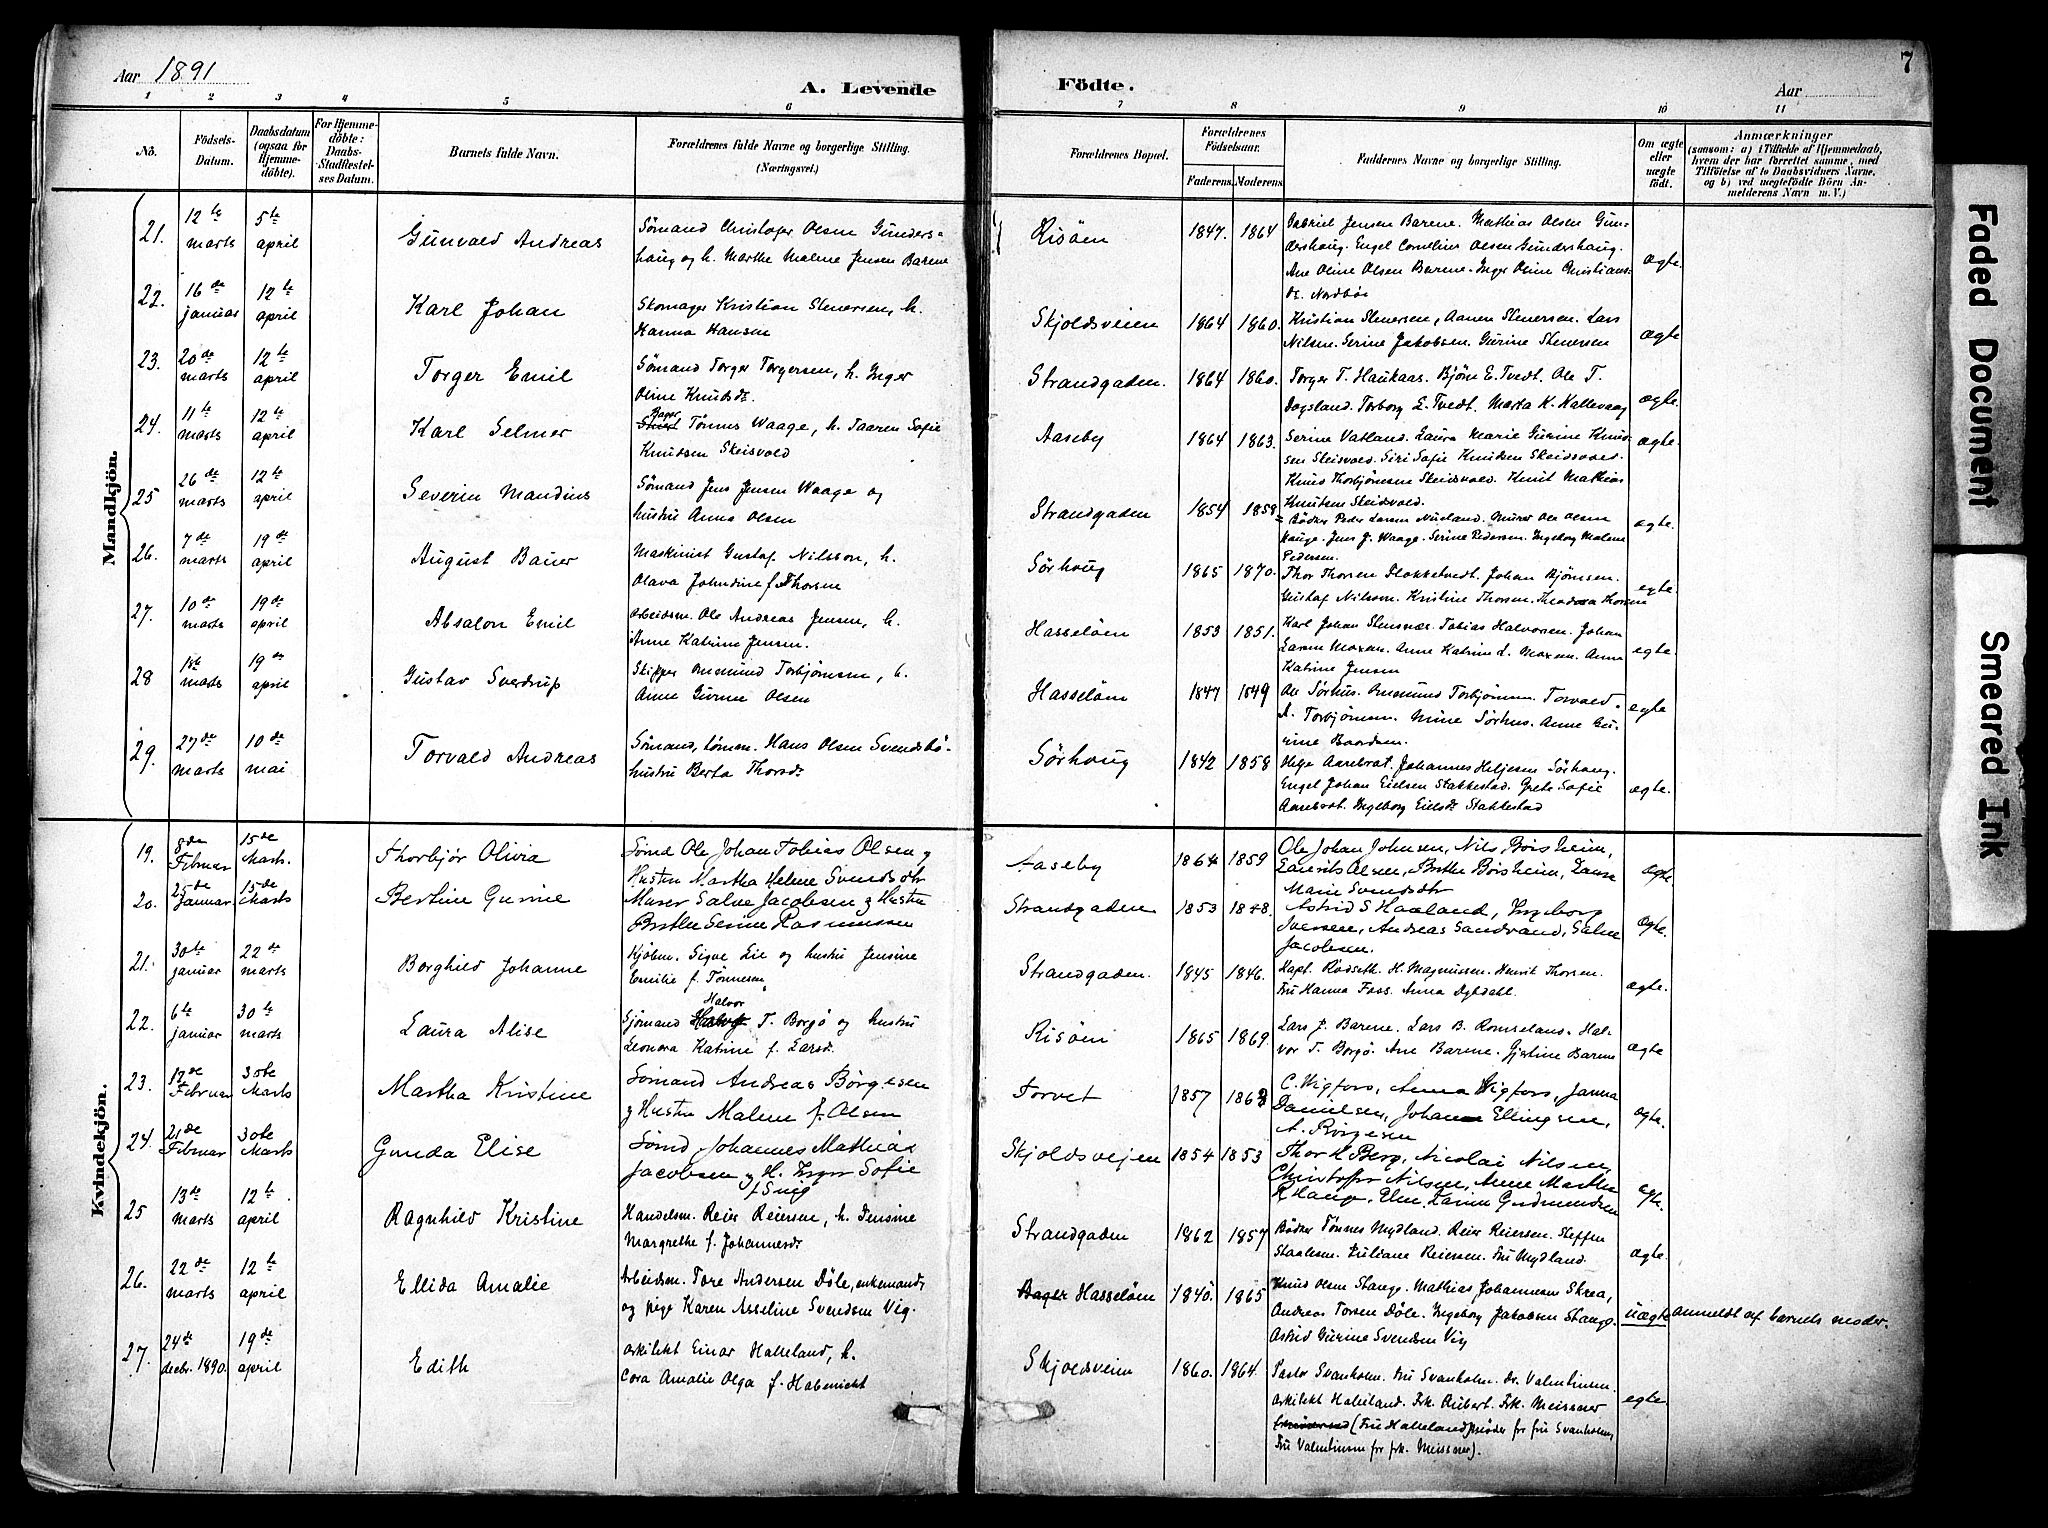 7
Aar 1891
A. Levende
Födte.
Aar
1 2 3 4 5 6 7 8 9 10 11
No.
Födsels-Datum.
Daabsdatum (ogsaa for Hjemmedöbte).
For Hjemmedöbte: Daabs-Stadfestelses Datum.
Barnets fulde Navn.
Forældrenes fulde Navne og borgerlige Stilling.
(Næringsvei.)
Forældrenes Bopæl.
Forældrenes Födselsaar.
Faderens. Moderens.
Faddernes Navne og borgerlige Stilling.
Om ægte eller uægte födt.
Anmærkninger
(saasom: a) i Tilfælde af Hjemmedaab, hvem der har forrettet samme, med Tilföielse af to Daabsvidners Navne, og b) ved uægtefödte Börn Anmelderens Navn m. V.)
Mandkjön.
21. 12te marts 5te april Gunvald Andreas Sømand Christofer Olsen Gunders-
haug og h. Marthe Malene Jensen Barene Risöen 1847. 1864 Gabriel Jensen Barene. Mathias Olsen Gun-
dershaug. Engel Cornelius Olsen Gundershaug.
Ane Oline Olsen Barene. Inger Oline Christians-
dr. Nordbö ægte.
22. 16de januar 12te april Karl Johan Skomager Kristian Stenersen, h.
Hanna Hansen Skjoldsveien 1864 1860. Kristian Stenersen, Aanen Stenersen. Lars
Nilsen. Serine Jakobsen. Gurine Stenersen ægte
23. 20de marts 12te april Torger Emil Sömand Torger Torgersen, h. Inger
Oline Knudsdr. Strandgaden. 1864 1860. Torger T. Haukaas. Bjørn E. Tvedt. Ole T.
Dagsland. Torborg E. Tvedt. Marta K. Kallevaag ægte.
24. 11te marts 12te april Karl Selmer Bager Tönnes Waage, h. Taaren Sofie
Knudsen Skeisvold Aaseby 1864 1863. Serine Vatland. Laura Marie Gurine Knud-
sen Skeisvold. Siri Sofie Knutsen Skeidsvold.
Knud Thorbjörnsen Skeidsvold. Knut Mathias
Knutsen Skeidsvold. ægte
25 26de marts 12te april Severin Mandius Sømand Jens Jensen Waage og
hustru Anna Olsen Strandgaden 1854 1858 Bödker Peder Larsen Nusland. Murer Ole Olsen
Hauge. Jens J. Waage. Serine Pedersen. Ingeborg Malene
Pedersen. ægte.
26. 7de marts 19de april August Bauer Maskinist Gustaf Nilsson, h.
Olava Johndine f. Thorsen Sörhaug 1865 1870. Thor Thorsen Flokketvedt. Johan Bjørnsen.
Gustaf Nilsson. Kristine Thorsen. Theodora Thorsen egte.
27. 10de marts 19de april Absalon Emil Arbeidsm. Ole Andreas Jensen, h.
Anne Katrine Jensen. Hasselöen 1853 1851. Karl Johan Stensnæs. Tobias Halvorsen. Johan
Larsen Moxen. Anne Katrine L. Moxen. Anna
Katrine Jensen egte.
28 18de marts 19de april Gustav Sverdrup Skipper Amund Torbjörnsen, h.
Anne Gurine Olsen Hasselöen 1847 1849 Ole Sörhus. Amund Torbjörnsen. Torvald
A. Torbjörnsen. Mine Sörhus. Anne Gu-
rine Baardsen. egte
29. 27de marts 10de mai Torvald Andreas Sømand, tömm. Hans Olsen Svendsbö.
hustru Berta Thorsdr. Sörhaug 1842 1858 Helge Aarebrot. Johannes Heljesen Sörhaug.
Engel Johan Eielsen Stakkestad. Grete Sofie
Aarebrot. Ingeborg Eielsdr. Stakkestad ægte.
Kvindekjön.
19. 8de Februar 15de Marts. Thorbjør Olivia Sömd Ole Johan Tobias Olsen og
Hustru Martha Helene Svendsdtr Aaseby 1864 1859 Ole Johan Johnsen, Nils Børsheim,
Laurits Olsen, Berthe Børsheim, Laura
Marie Svendsdtr ægte
20. 25de Januar 15de Marts Bertine Gurine Murer Salve Jacobsen og Hustru
Berthe Serine Rasmussen Strandgaden 1853 1848. Astrid S Haaland, Ingeborg
Iversen, Andreas Sandvand, Salve
Jacobsen. ægte.
21. 30te januar 22de marts Borghild Johanne Kjöbm. Sigve Lie og hustru Jensine
Emilie f. Tönnesen Strandgaden. 1845 1846. Kapt. Rödseth. H. Magnussen. Henrik Thorsen.
Fru Hanna Foss. Anna Dybdahl. ægte.
22. 6te januar 30te marts Laura Alise Sjömand Halvor T. Borgö og hustru
Leonora Katrine f. Larsdr. Risöen 1865 1869. Lars J. Barene. Lars B. Romseland. Hal-
vor T. Borgö. Ane Barene. Gjertine Barene ægte
23. 17de Februar 30te Marts Martha Kristine Sømand Andreas Børgesen
og Hustru Malene f. Olsen Torvet 1857 1863 C. Wigfors, Anna Wigfors, Janna
Danielsen, Johan Ellingsen,
A. Børgesen ægte.
24. 21de Februar 30te Marts Gunda Elise Sömd Johannes Mathias
Jacobsen og H. Inger Sofie
f Svig Skjoldsvejen 1854 1853 Thor H Berg, Nicolai Nilsen,
Christoffer Nilsen, Anne Marthe
R Haug, Elen Karine Gudmundsen ægte.
25 13de marts 12te april Ragnhild Kristine Handelsm. Reier Reiersen, h. Jensine
Margrethe f. Johannesdr Strandgaden 1862 1857 Bödker Tönnes Mydland. Reier Reiersen. Steffen
Staalesen. Juliane Reiersen. Fru Mydland. ægte.
26. 22de marts 12te april Ellida Amalie Arbeidsm. Tore Andersen Döle, enkemand,
og pige Karen Asseline Svendsen Vig. Hasselöen 1840. 1865 Knud Olsen Stange. Mathias Johannesen Skrea,
Andreas Torsen Döle. Ingeborg Jakobsen Stange.
Astrid Gurine Svendsen Vig uægte anmeldt af barnets moder.
27. 24de decbr. 1890. 19de april Edith Arkitekt Einar Halleland, h.
Cora Amalie Olga f. Habenicht Skjoldsveien 1860. 1864. Pastor Svanholm. Fru Svanholm. Dr. Valentinsen.
Arkitekt Halleland. Frk. Aubert. Frk. Meissner
(Fru Halleland möder for fru Svanholm,
Fru Valentinsen for frk. Meissner). egte
Faded Document
Smeared Ink